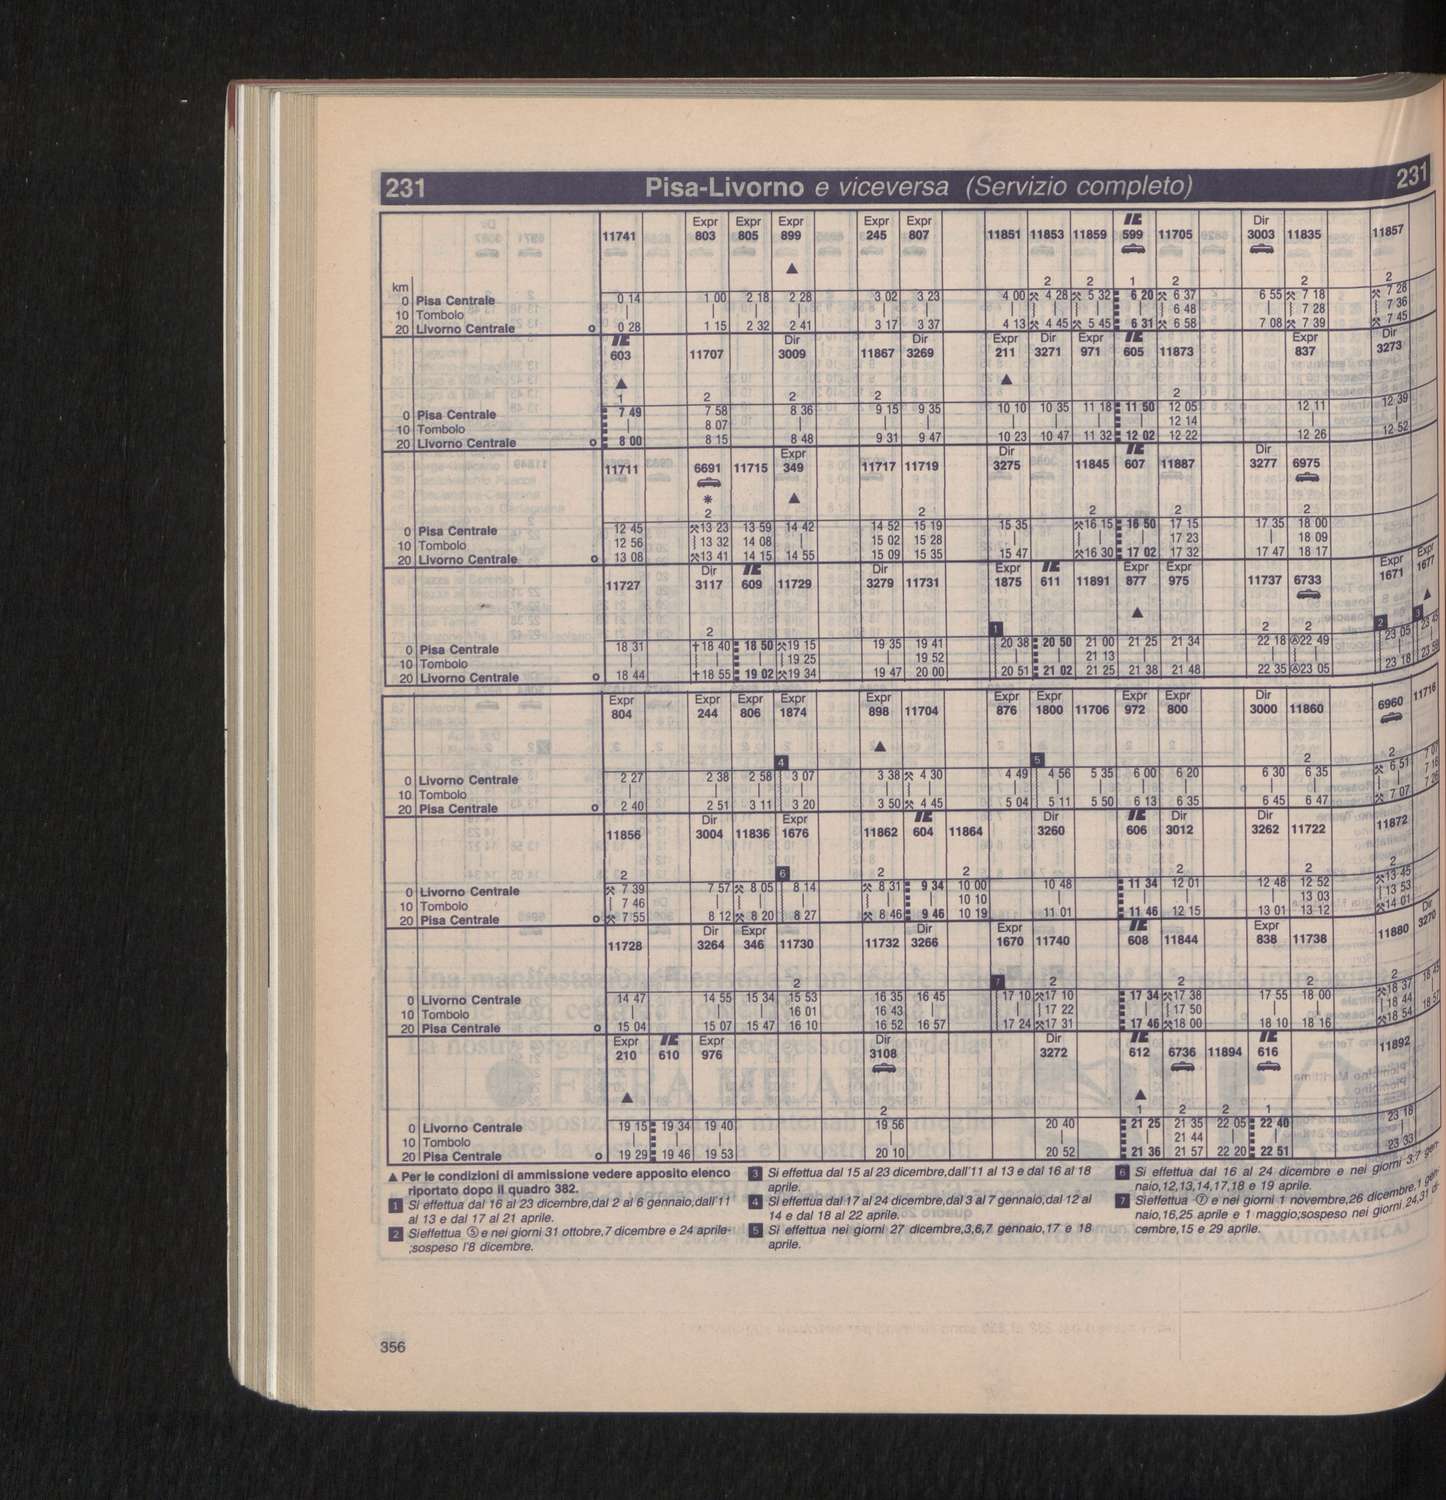 231 Pisa-Livorno e viceversa (Servizio completo) 231
Expr Expr Expr Expr Expr IC Dir
11741 803 805 899 245 807 11851 11853 11859 599 11705 3003 11835 11857
▲
km 2 2 1 2 2 2
0 Pisa Centrale 0 14 1 00 2 18 2 28 3 02 3 23 4 00 ⚒ 4 28 ⚒ 5 32 6 20 ⚒ 6 37 6 55 ⚒ 7 18 ⚒ 7 28
10 Tombolo | | | | | | | | | | 6 48 | 7 28 7 36
20 Livorno Centrale o 0 28 1 15 2 32 2 41 3 17 3 37 4 13 ⚒ 4 45 ⚒ 5 45 6 31 ⚒ 6 58 7 08 ⚒ 7 39 ⚒ 7 45
IC Dir Dir Expr Dir Expr IC Expr Dir
603 11707 3009 11867 3269 211 3271 971 605 11873 837 3273
▲ ▲
1 2 2 2 2
0 Pisa Centrale 7 49 7 58 8 36 9 15 9 35 10 10 10 35 11 18 11 50 12 05 12 11 12 39
10 Tombolo | 8 07 | | | | | | | 12 14 | |
20 Livorno Centrale o 8 00 8 15 8 48 9 31 9 47 10 23 10 47 11 32 12 02 12 22 12 26 12 52
Expr Dir IC Dir
11711 6691 11715 349 11717 11719 3275 11845 607 11887 3277 6975
* ▲
2 2 2 2 2
0 Pisa Centrale 12 45 ⚒13 23 13 59 14 42 14 52 15 19 15 35 ⚒16 15 16 50 17 15 17 35 18 00
10 Tombolo 12 56 13 32 14 08 | 15 02 15 28 | | | 17 23 | 18 09
20 Livorno Centrale o 13 08 ⚒13 41 14 15 14 55 15 09 15 35 15 47 ⚒16 30 17 02 17 32 17 47 18 17
Dir IC Dir Expr IC Expr Expr Expr Expr
11727 3117 609 11729 3279 11731 1875 611 11891 877 975 11737 6733 1671 1677
▲ ▲
2 1 2 2 2 3
0 Pisa Centrale 18 31 †18 40 18 50 ⚒19 15 19 35 19 41 20 38 20 50 21 00 21 25 21 34 22 18 Ⓐ22 49 23 05 23 45
10 Tombolo | | | 19 25 | 19 52 | | 21 13 | | | | | |
20 Livorno Centrale o 18 44 †18 55 19 02 ⚒19 34 19 47 20 00 20 51 21 02 21 25 21 38 21 48 22 35 Ⓐ23 05 23 18 23 58
Expr Expr Expr Expr Expr Expr Expr Expr Expr Dir
804 244 806 1874 898 11704 876 1800 11706 972 800 3000 11860 6960 11716
▲
4 5 2 2
0 Livorno Centrale 2 27 2 38 2 58 3 07 3 38 ⚒ 4 30 4 49 4 56 5 35 6 00 6 20 6 30 6 35 ⚒ 6 51 7 07
10 Tombolo | | | | | | | | | | | | | | 7 18
20 Pisa Centrale o 2 40 2 51 3 11 3 20 3 50 ⚒ 4 45 5 04 5 11 5 50 6 13 6 35 6 45 6 47 ⚒ 7 07 7 26
Dir Expr IC Dir IC Dir Dir
11856 3004 11836 1676 11862 604 11864 3260 606 3012 3262 11722 11872
2 6 2 2 2 2 2
0 Livorno Centrale ⚒ 7 39 7 57 ⚒ 8 05 8 14 ⚒ 8 31 9 34 10 00 10 48 11 34 12 01 12 48 12 52 ⚒13 45
10 Tombolo 7 46 | | | | | 10 10 | | | | 13 03 13 53
20 Pisa Centrale o ⚒ 7 55 8 12 ⚒ 8 20 8 27 ⚒ 8 46 9 46 10 19 11 01 11 46 12 15 13 01 13 12 ⚒14 01
Dir Expr Dir Expr IC Expr Dir
11728 3264 346 11730 11732 3266 1670 11740 608 11844 838 11738 11880 3270
2 7 2 2 2 2
0 Livorno Centrale 14 47 14 55 15 34 15 53 16 35 16 45 17 10 ⚒17 10 17 34 ⚒17 38 17 55 18 00 ⚒18 37 18 45
10 Tombolo | | | 16 01 16 43 | | 17 22 | 17 50 | | 18 44 |
20 Pisa Centrale o 15 04 15 07 15 47 16 10 16 52 16 57 17 24 ⚒17 31 17 46 ⚒18 00 18 10 18 16 ⚒18 54 18 57
Expr IC Expr Dir Dir IC IC
210 610 976 3108 3272 612 6736 11894 616 11892
▲ ▲
2 1 2 2 1
0 Livorno Centrale 19 15 19 34 19 40 19 56 20 40 21 25 21 35 22 05 22 40 23 18
10 Tombolo | | | | | | 21 44 | | |
20 Pisa Centrale o 19 29 19 46 19 53 20 10 20 52 21 36 21 57 22 20 22 51 23 33
▲ Per le condizioni di ammissione vedere apposito elenco
riportato dopo il quadro 382.
1 Si effettua dal 16 al 23 dicembre,dal 2 al 6 gennaio,dall'11
al 13 e dal 17 al 21 aprile.
2 Sieffettua ⑤e nei giorni 31 ottobre,7 dicembre e 24 aprile-
;sospeso l'8 dicembre.
3 Si effettua dal 15 al 23 dicembre,dall'11 al 13 e dal 16 al 18
aprile.
4 Si effettua dal 17 al 24 dicembre,dal 3 al 7 gennaio,dal 12 al
14 e dal 18 al 22 aprile.
5 Si effettua nei giorni 27 dicembre,3,6,7 gennaio,17 e 18
aprile.
6 Si effettua dal 16 al 24 dicembre e nei giorni 3,7 gen-
naio,12,13,14,17,18 e 19 aprile.
7 Sieffettua ⑦ e nei giorni 1 novembre,26 dicembre,1 gen-
naio,16,25 aprile e 1 maggio;sospeso nei giorni 24,31 di-
cembre,15 e 29 aprile.
356